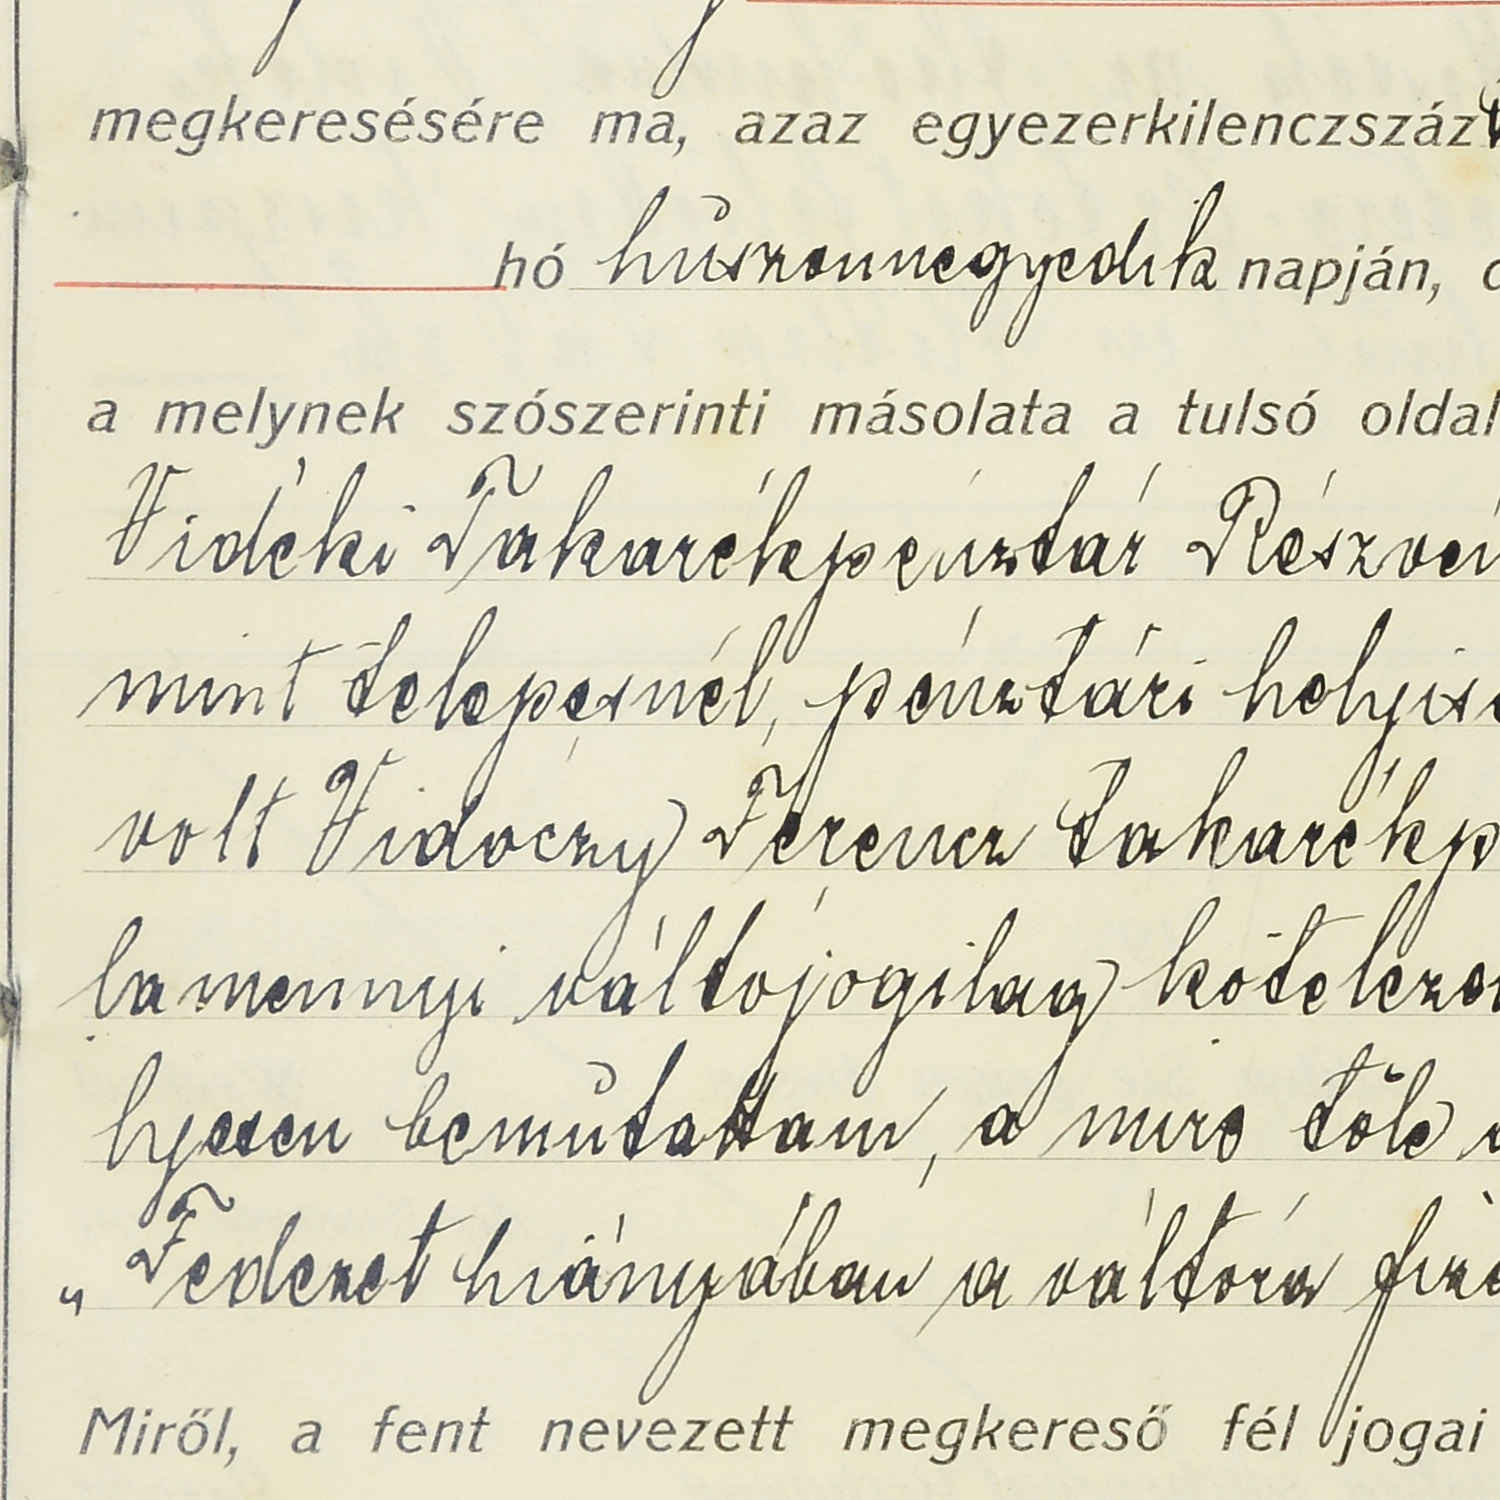 megkeresésére ma, azaz egyezerkilenczszáz
hó huszonnegyedik napján,
a melynek szószerinti másolata a tulsó oldal
Vidéki Takarékpénztár Részvén
mint telepesnél, pénztári helyisé
volt Vidóczy Ferencz takarékp
lamennyi váltójogilag kötelezet
lyesen bemutattam, a mire tőle
„Fedezet hiányában a váltóra fize
Miről, a fent nevezett megkereső fél jogai